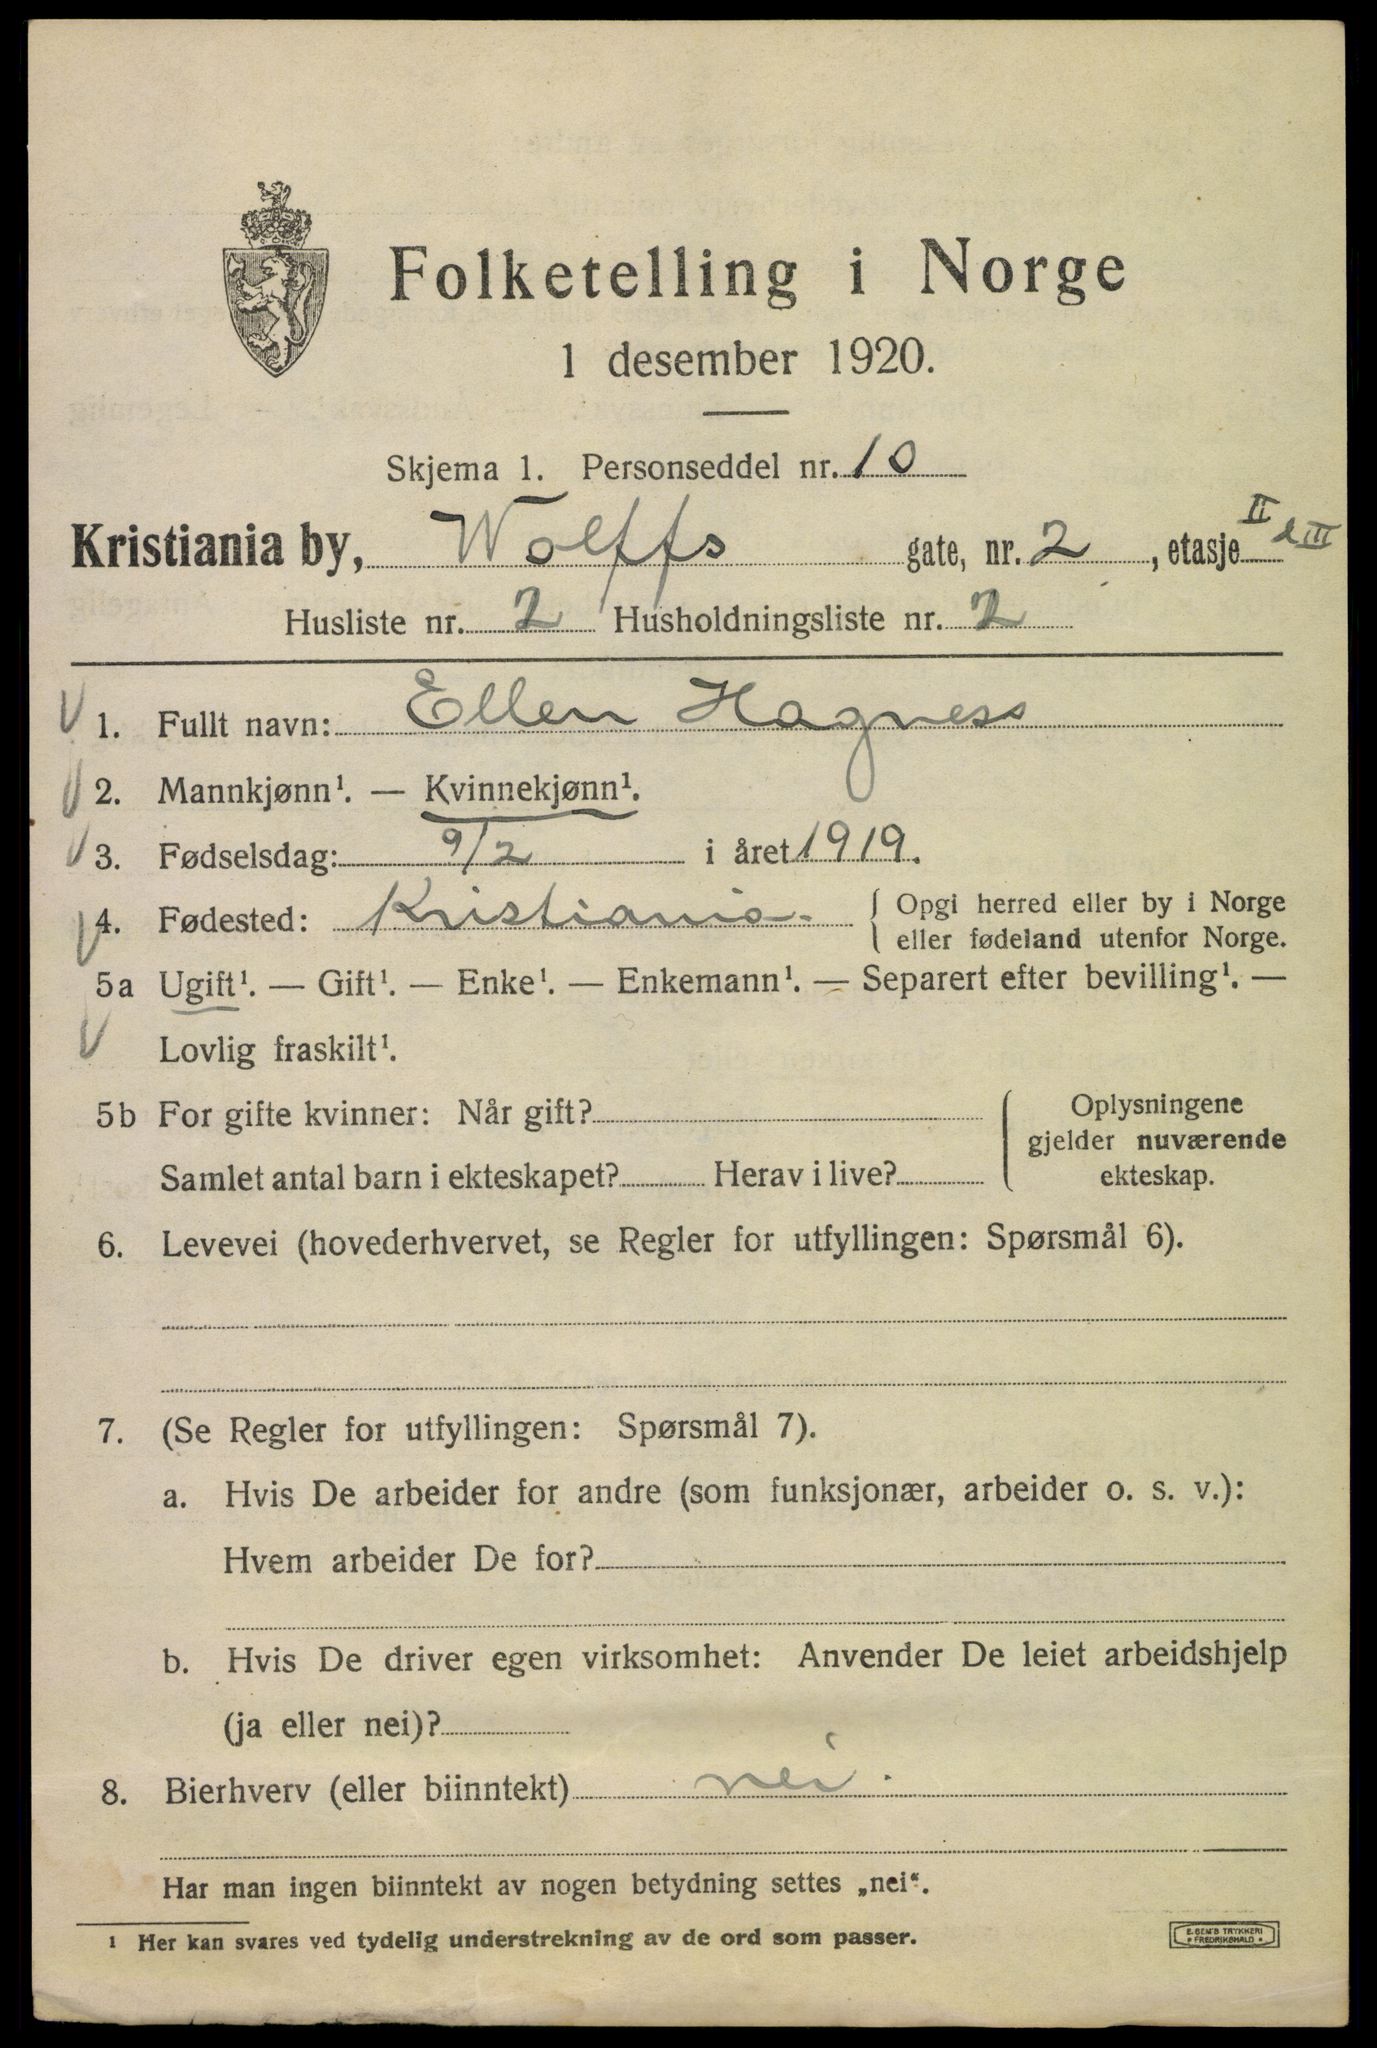 Folketelling i Norge
1 desember 1920.
Skjema 1. Personseddel nr. 10
Kristiania by, Wolffs gate, nr. 2, etasje II & III
Husliste nr. 2 Husholdningsliste nr. 2
1. Fullt navn: Ellen Hagness
2. Mannkjønn¹. — Kvinnekjønn¹.
3. Fødselsdag: 9/2 i året 1919.
4. Fødested: Kristiania. { Opgi herred eller by i Norge
eller fødeland utenfor Norge.
5a Ugift¹. — Gift¹. — Enke¹. — Enkemann¹. — Separert efter bevilling¹. —
Lovlig fraskilt¹.
5b For gifte kvinner: Når gift?
Samlet antal barn i ekteskapet? Herav i live?
Oplysningene
gjelder nuværende
ekteskap.
6. Levevei (hovederhvervet, se Regler for utfyllingen: Spørsmål 6).
7. (Se Regler for utfyllingen: Spørsmål 7).
a. Hvis De arbeider for andre (som funksjonær, arbeider o. s. v.):
Hvem arbeider De for?
b. Hvis De driver egen virksomhet: Anvender De leiet arbeidshjelp
(ja eller nei)?
8. Bierhverv (eller biinntekt) nei.
Har man ingen biinntekt av nogen betydning settes „nei“.
¹ Her kan svares ved tydelig understrekning av de ord som passer.
E. SEM'S TRYKKERI
FREDRIKSHALD